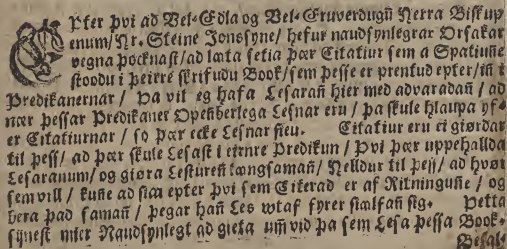 Epter þvi ad Vel-Edla og Vel-Eruverdugū Herra Biskup
enum/Hr. Steine Jonssyne/ hefur naudsynlegrar Orsakar
vegna þocknast/ad læta setia þær Citatiur sem a Spatiune
stoodu i þeirre skrifudu Book/sem þesse er prentud epter/iñ i
Predikanernar / Þa vil eg hafa Lesarañ hier med advaradañ / ad
nær þessar Predikaner Openberlega Lesnar eru / þa skule hlaupa yf-
er Citatiurnar / so þær ecke Lesnar sieu. Citatiur eru ei giørdar
til þess/ ad þær skule Lesast i eirnre Predikun / Þvi þær uppehallda
Lesaranum/ og giøra Lesturen langsamañ/ Helldur til þess/ ad hvør
sem vill / kuñe ad siaa epter þvi sem Citerad er af Ritninguñe / og
bera þad samañ / þegar hañ Les wtaf fyrer sialfañ sig. Þetta
sijnest mier Naudsynlegt ad gieta um vid þa sem Lesa þessa Book.
Besal-